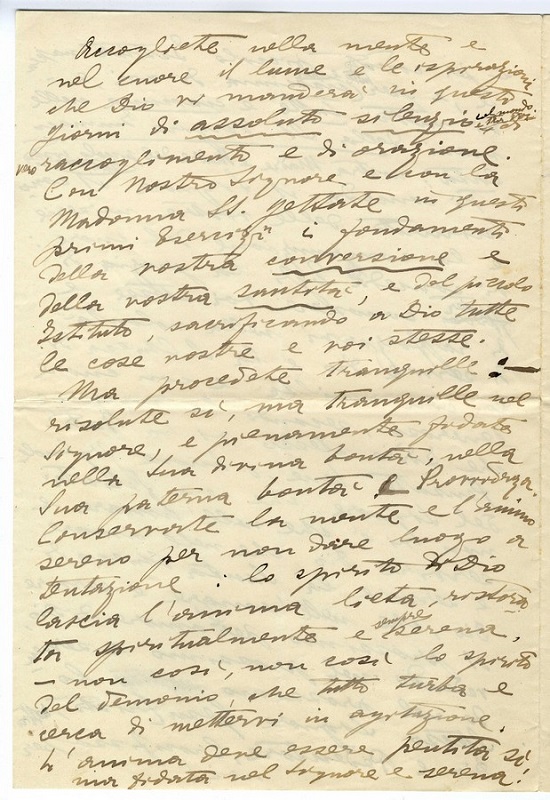 Accogliete nella mente e
nel cuore il lume e le ispirazioni
che Dio vi manderà in questi
giorni di assoluto silenzio
vero raccoglimento e di orazione.
Con Nostro Signore e con la
Madonna SS. gettate in questi
primi Esercizii i fondamenti
della vostra conversione e
della vostra santità, e del piccolo
Istituto, sacrificando a Dio tutte
le cose vostre e voi stesse.
Ma procedete tranquille: -
risolute sì, ma tranquille nel
Signore, e pienamente fidate
nella Sua divina bontà, nella
Sua paterna bontà e Provvidenza.
Conservate la mente e l'animo
sereno per non dare luogo a
tentazione: lo spirito di Dio
lascia l'anima lieta, ristora-
ta spiritualmente e sempre serena,
- non così, non così lo spirito
del demonio, che tutto turba e
cerca di mettervi in agitazione.
L'anima deve essere pentita sì
ma fidata nel Signore e serena!